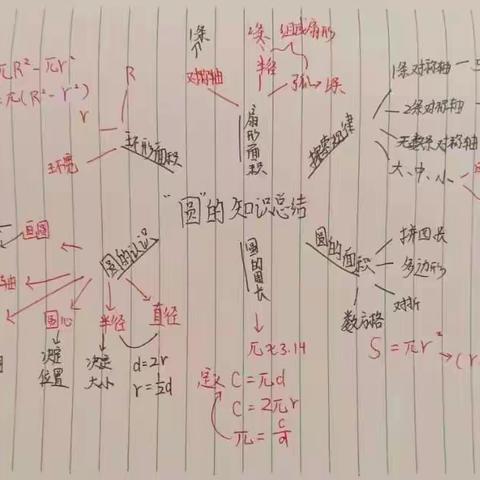 πR²-πr²
=π(R²-r²)
R
r
环宽
环形面积
1条
对称轴
2条
半径
组成扇形
弧
1条
扇形面积
探索规律
1条对称轴
2条对称轴
无数条对称轴
大、中、小
“圆”的知识总结
圆的认识
画圆
轴
圆心
决定
位置
半径
决定
大小
直径
d=2r
r=½d
圆的周长
π≈3.14
定义
C=πd
C=2πr
π=C/d
圆的面积
拼图长
多边形
对折
数方格
S=πr²
(r